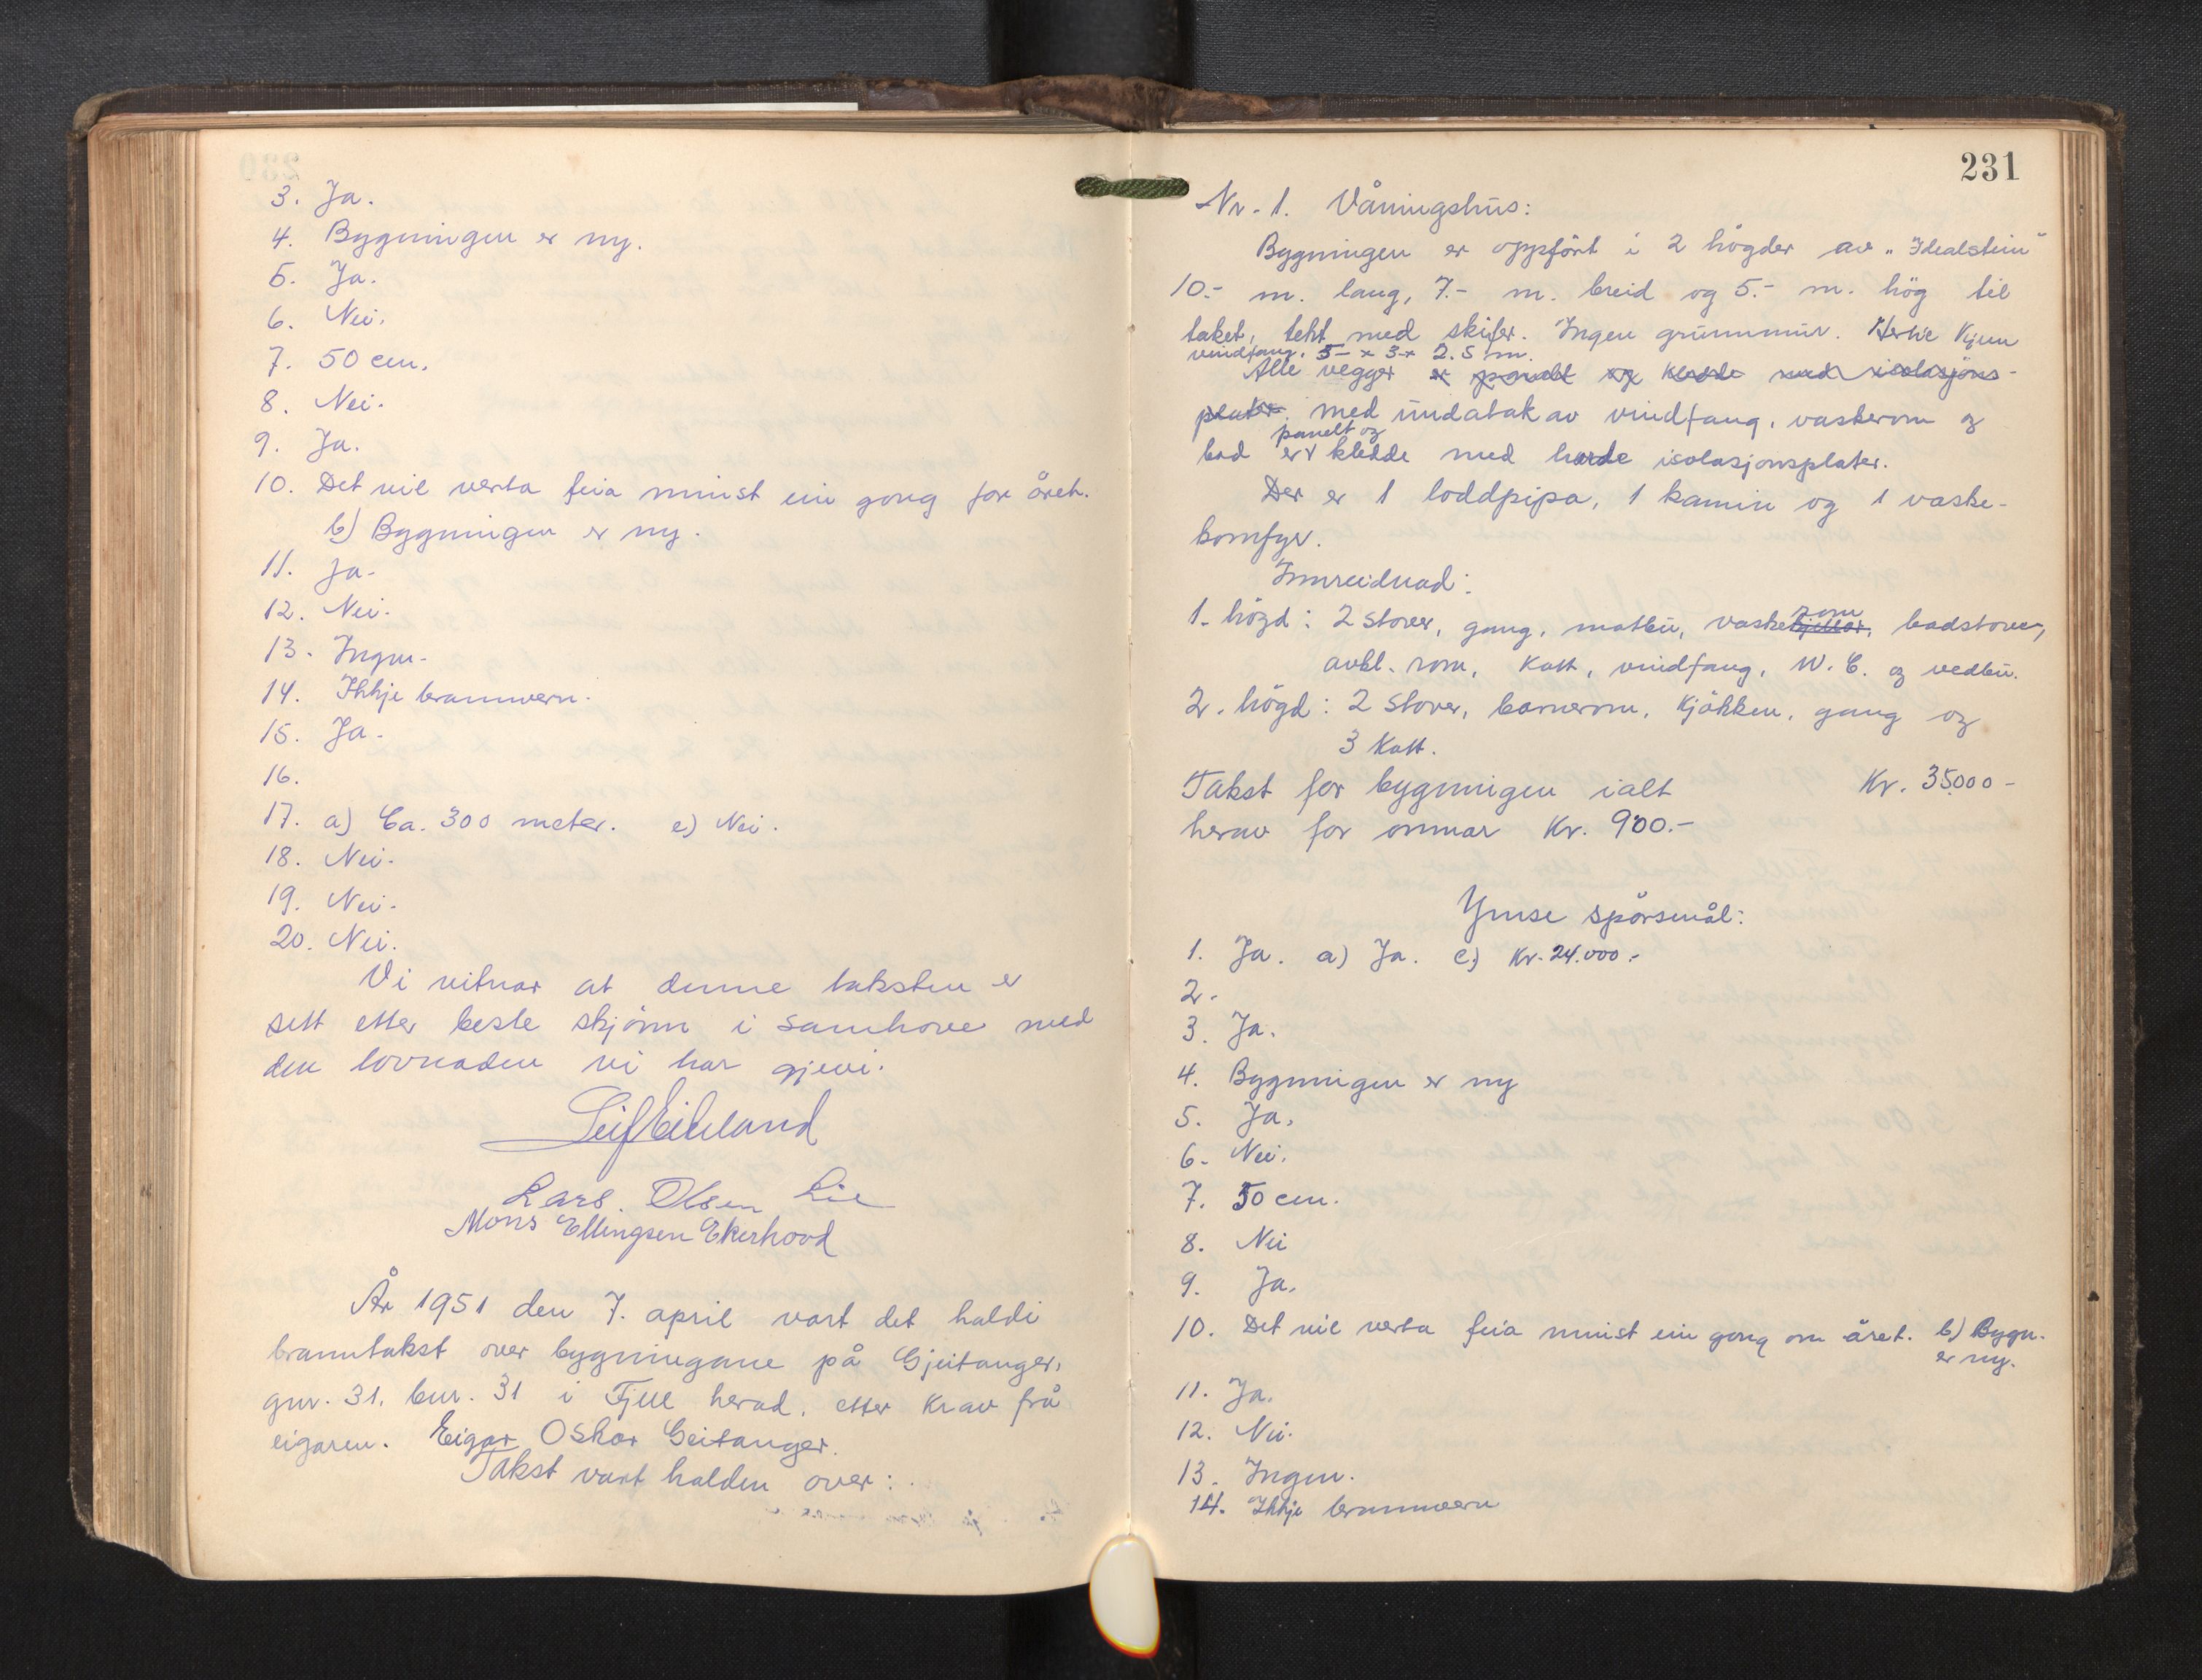 3. Ja.
4. Bygningen er ny.
5. Ja.
6. Nei.
7. 50 cm.
8. Nei.
9. Ja.
10. Det vil verta feia minst ein gong for året.
b) Bygningen er ny.
11. Ja.
12. Nei.
13. Ingen.
14. Ikkje brannvern.
15. Ja.
16.
17. a) Ca. 300 meter. c) Nei.
18. Nei.
19. Nei.
20. Nei.
Vi vitnar at denne taksten er
sett etter beste skjönn i samhøve med
den lovnaden vi har gjevi.
Leif Eikeland
Lars Olsen Lie
Mons Ellingsen Ekerhovd
År 1951 den 7. april vart det haldi
branntakst over bygningane på Gjeitanger,
gnr. 31, bnr. 31 i Fjell herad, etter krav frå
eigaren. Eigar Oskar Geitanger.
Takst vart halden over:
231
Nr. 1. Våningshus:
Bygningen er oppfört i 2 högder av "Idealstein"
10.- m. lang, 7.- m. breid og 5.- m. hög til
taket, tekt med skifer. Ingen grunnmur.
vindfang, 3- x 3- x 2.5 m.
Alle vegger er panelt og kledde med isolasjons-
plater. med undatak av vindfang, vaskerom og
panelt og
bad er kledde med harde isolasjonsplater.
Der er 1 loddpipa, 1 kamin og 1 vaske-
komfyr.
Innreidnad:
1. högd: 2 stover, gang, matbu, vaskekjellar, badstove,
rom
avkl. rom, kott, vindfang, W.C. og vedbu.
2. högd: 2 stover, barnerom, kjökken, gang og
3 kott.
Takst for bygningen ialt Kr. 35000-
herav for omnar Kr. 900.-
Ymse spörsmål:
1. Ja. a) Ja. c) Kr. 24.000.-
2.
3. Ja.
4. Bygningen er ny
5. Ja.
6. Nei.
7. 50 cm.
8. Nei
9. Ja.
10. Det vil verta feia minst ein gong om året. b) Bygn.
er ny.
11. Ja.
12. Nei.
13. Ingen.
14. Ikkje brannvern